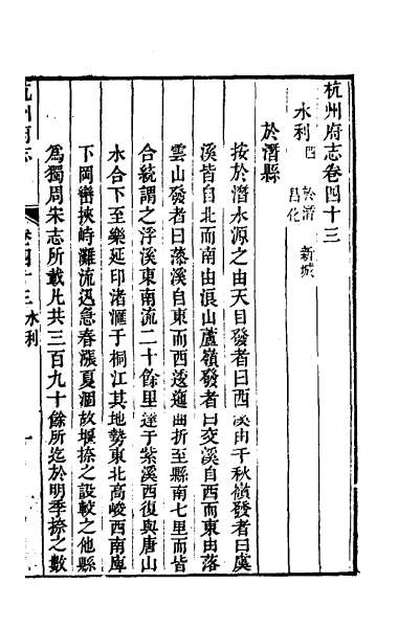 杭州府志卷四十三
水利四 於潛 新城
昌化
於潛縣
按於潛水源之由天目發者曰西溪由千秋嶺發者曰虞
溪皆自北而南由浪山蘆嶺發者曰交溪自西而東由落
雲山發者曰藻溪自東而西逶迤曲折至縣南七里而皆
合統謂之浮溪東南流二十餘里達于紫溪西復與唐山
水合下至樂延印渚滙于桐江其地勢東北高峻西南庳
下岡巒挾峙灘流迅急春漲夏涸故堰捺之設較之他縣
爲獨周朱志所載凡共三百九十餘所迄於明季捺之數
杭州府志
卷四十三 水利
一